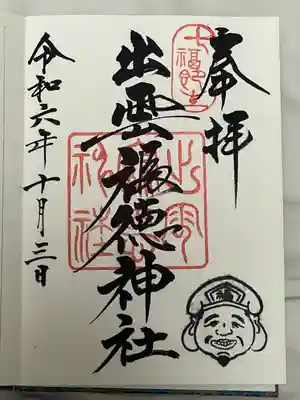 奉拝
出雲福徳神社
令和六年十月三日